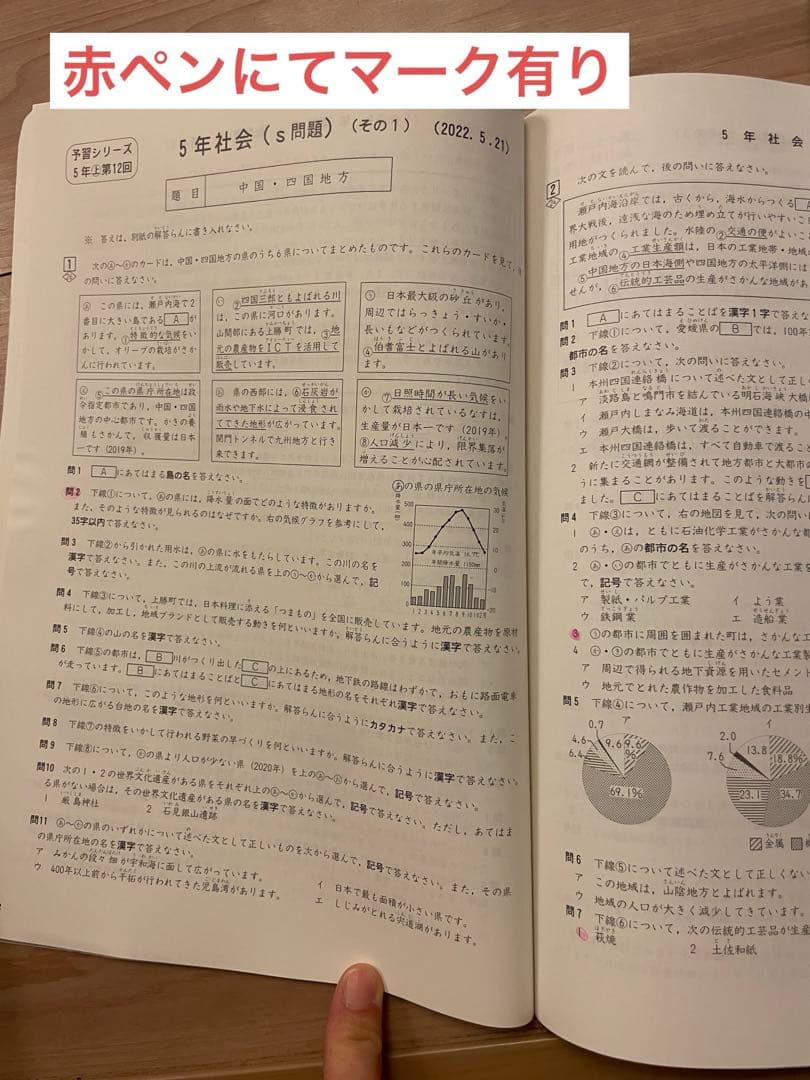 赤ペンにてマーク有り
予習シリーズ
5年㊤第12回
5年社会(s問題)(その1) (2022.5.21)
題目 中国・四国地方
※ 答えは、別紙の解答らんに書き入れなさい。
1 次のあ~かのカードは、中国・四国地方の県のうち6県についてまとめたものです。これらのカードを見て、
の問いに答えなさい。
あ この県には、瀬戸内海で2
番目に大きい島である A が
あります。①特徴的な気候をい
かして、オリーブの栽培がさか
んに行われています。
い ②四国三郎ともよばれる川
は、この県に河口があります。
山間部にある上勝町では、③地
元の農産物をICTを活用して
販売しています。
う 日本最大級の砂丘があり、
周辺ではらっきょう・すいか・
長いもなどがつくられています。
④伯耆富士とよばれる山があり
ます。
え ⑤この県の県庁所在地は政
令指定都市であり、中国・四国
地方の中心都市です。かきの養
殖もさかんで、収獲量は日本
一です(2019年)。
お 県の西部には、⑥石灰岩が
雨水や地下水によって浸食され
てできた地形が広がっています。
関門トンネルで九州地方と行き
来できます。
か ⑦日照時間が長い気候をい
かして栽培されているなすは、
生産量が日本一です(2019年)。
⑧人口減少により、限界集落が
増えることが心配されています。
問1 A にあてはまる島の名を答えなさい。
問2 下線①について、あの県には、降水量の面でどのような特徴がありますか。
また、そのような特徴が見られるのはなぜですか。右の気候グラフを参考にして、
35字以内で答えなさい。
あの県の県庁所在地の気候
年平均気温 16.7℃
年間降水量 1150mm
1 2 3 4 5 6 7 8 9 10 11 12月
問3 下線②から引かれた用水は、あの県に水をもたらしています。この川の名を
漢字で答えなさい。また、この川の上流が流れる県を上のう~かから選んで、記
号で答えなさい。
問4 下線③について、上勝町では、日本料理に添える「つまもの」を全国に販売しています。地元の農産物を原材
料にして、加工し、地域ブランドとして販売する動きを何といいますか。解答らんに合うように漢字で答えなさい。
問5 下線④の山の名を漢字で答えなさい。
問6 下線⑤の都市は、 B 川がつくり出した C の上にあるため、地下鉄の路線はわずかで、おもに路面電車
が走っています。 B にあてはまることばと C にあてはまる地形の名をそれぞれ漢字で答えなさい。
問7 下線⑥について、このような地形を何といいますか。解答らんに合うようにカタカナで答えなさい。また、こ
の地形に広がる台地の名を漢字で答えなさい。
問8 下線⑦の特徴をいかして行われる野菜の早づくりを何といいますか。解答らんに合うように漢字で答えなさい。
問9 下線⑧について、かの県より人口が少ない県(2020年)を上のあ~おから選んで、記号で答えなさい。
問10 次の1・2の世界文化遺産がある県をそれぞれ上のあ~かから選んで、記号で答えなさい。ただし、あてはま
る県がない場合は、その世界文化遺産がある県の名を漢字で答えなさい。
1 厳島神社 2 石見銀山遺跡
問11 あ~かの県のいずれかについて述べた文として正しいものを次から選んで、記号で答えなさい。また、その県
の県庁所在地の名を漢字で答えなさい。
ア みかんの段々畑が宇和海に面して広がっています。
イ 日本で最も面積が小さい県です。
ウ 400年以上前から干拓が行われてきた児島湾があります。
エ しじみがとれる宍道湖があります。
5年社会
2 次の文を読んで、後の問いに答えなさい。
瀬戸内海沿岸では、古くから、海水からつくる
界大戦後、遠浅な海のため埋め立てが行いやすいこ
用地がつくられました。水陸の②交通の便がよいこ
工業地域の④工業生産額は、日本の工業地帯・地域の
⑤中国地方の日本海側や四国地方の太平洋側には
せんが、⑥伝統的工芸品の生産がさかんな地域があ
問1 A にあてはまることばを漢字1字で答えな
問2 下線①について、愛媛県の B では、100年
都市の名を答えなさい。
問3 下線②について、次の問いに答えなさい。
1 本州四国連絡橋について述べた文として正し
ア 淡路島と鳴門市を結んでいる明石海峡大橋
イ 瀬戸内しまなみ海道は、本州四国連絡橋の中
ウ 瀬戸大橋は、歩いて渡ることができます。
エ 本州四国連絡橋は、すべて自動車で渡ること
2 新たに交通網が整備されて地方都市と大都市の
うに集まることがあります。このような動きを
ました。 C にあてはまることばを解答らん
問4 下線③について、右の地図を見て、次の問い
ともに石油化学工業がさかんな都
のうち、あの都市の名を答えなさい。
の都市でともに生産がさかんな工業を
て、記号で答えなさい。
ア 製紙・パルプ工業 イ よう業
ウ 鉄鋼業 エ 造船業
3 うの都市に周囲を囲まれた町は、さかんな工
の都市でともに生産がさかんな工業製
ア 周辺で得られる地下資源を用いたセメント
ウ 地元でとれた農作物を加工した食料品
問5 下線④について、瀬戸内工業地域の工業別生
ア イ
0.7
4.6
6.4
9.6
9.6%
69.1%
2.0
7.6
13.8
18.8%
23.1
34.7
金属
問6 下線⑤について述べた文として正しくない
ア この地域は、山陰地方とよばれます。
ウ 地域の人口が大きく減少してきています。
問7 下線⑥について、次の伝統的工芸品が生産
1 萩焼 2 土佐和紙